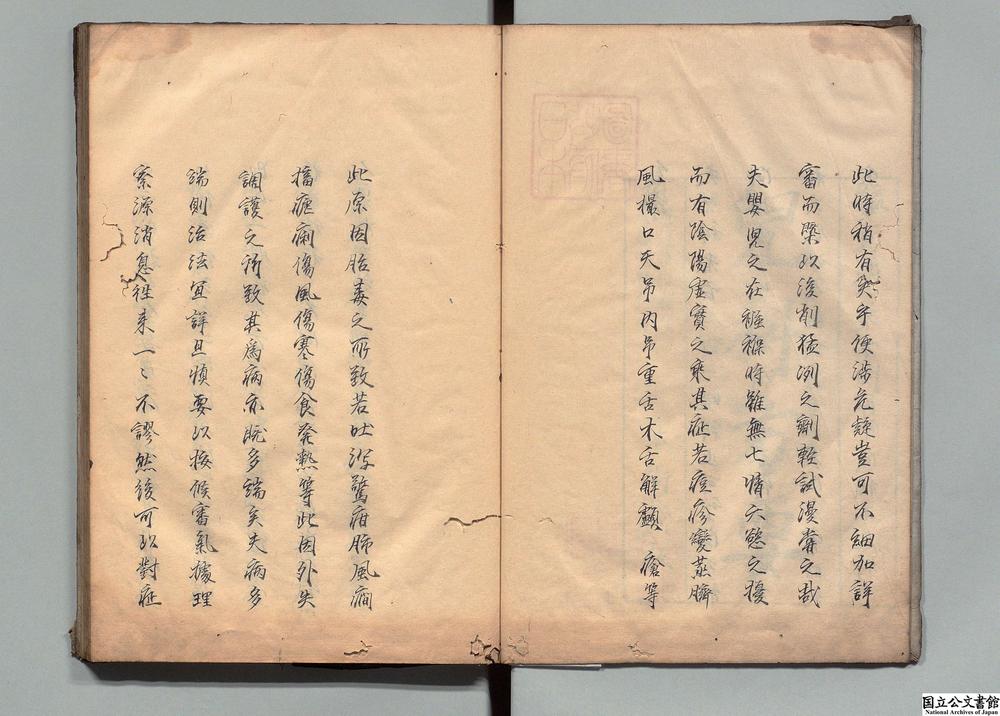 此時稍有失守便涉危疑豈可不細加詳
審而槩以浚削猛冽之劑輕試漫嘗之哉
夫嬰児之在襁褓時雖無七情六慾之擾
而有陰陽虚實之乘其症若痘疹變蒸臍
風撮口天吊内吊重舌木舌解顱 瘡等
此原因胎毒之所致若吐泻驚疳肺風癇
搐瘧痢傷風傷寒傷食発熱等此因外失
調護之所致其為病亦既多端矣夫病多
端則治法宜詳且慎要以按候審氣據理
察源消息徃来一〻不謬然後可以對症
国立公文書館
National Archives of Japan